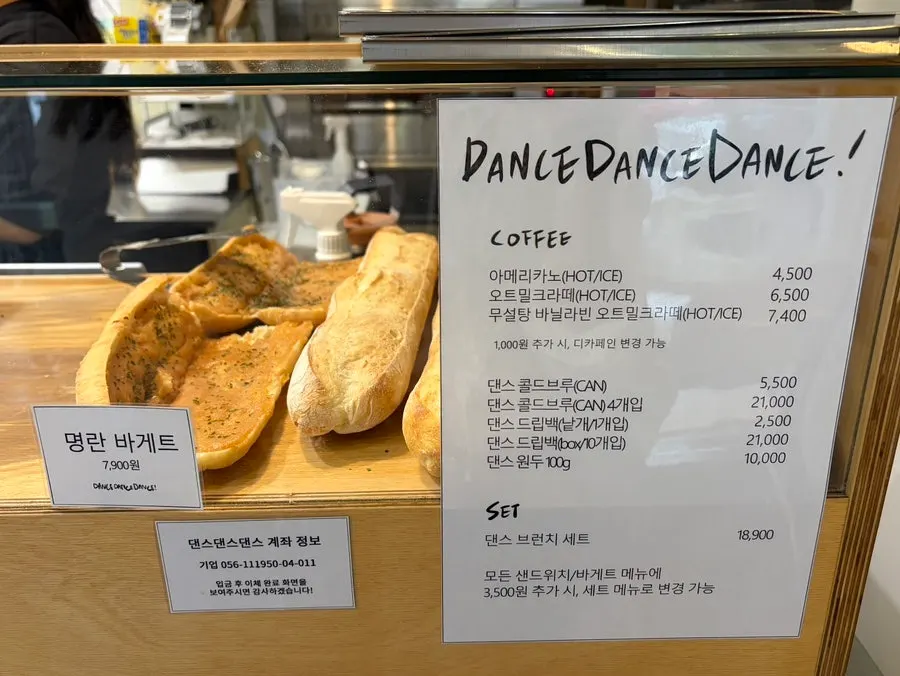 DANCEDANCEDANCE!
COFFEE
아메리카노(HOT/ICE) 4,500
오트밀크라떼(HOT/ICE) 6,500
무설탕 바닐라빈 오트밀크라떼(HOT/ICE) 7,400
1,000원 추가 시, 디카페인 변경 가능
댄스 콜드브루(CAN) 5,500
댄스 콜드브루(CAN) 4개입 21,000
댄스 드립백(낱개/1개입) 2,500
댄스 드립백(box/10개입) 21,000
댄스 원두 100g 10,000
SET
댄스 브런치 세트 18,900
모든 샌드위치/바게트 메뉴에
3,500원 추가 시, 세트 메뉴로 변경 가능
명란 바게트
7,900원
DANCEDANCEDANCE!
댄스댄스댄스 계좌 정보
기업 056-111950-04-011
입금 후 이체 완료 화면을
보여주시면 감사하겠습니다!